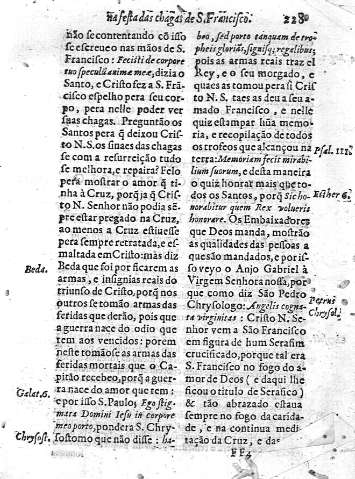 na festa das chagas de S. Francisco. 228
não se contentando cõ isso
se escreueo nas mãos de S.
Francisco: Fecisti de corpore
tuo speculũ animæ meæ, dizia o
Santo, e Cristo fez a S. Frã
cisco espelho pera seu cor
po, pera nelle poder ver
suas chagas. Preguntão os
Santos pera q̃ deixou Cris
to N.S. os sinaes das chagas
se com a resurreição tudo
se melhora, e repaira? Felo
pera mostrar o amor q̃ ti
nha à Cruz, porq̃ ja q̃ Cris
to N. Senhor não podia sẽ-
pre estar pregado na Cruz,
ao menos a Cruz estiuesse
pera sempre retratada, e es-
maltada em Cristo: màs diz
Beda.
Beda que foi por ficarem as
armas, e insignias reais do
triunso de Cristo, porq̃ nos
outros se tomão armas das
feridas que derão, pois que
a guerra nace do odio que
tem aos vencidos: porem
neste tomãose as armas das
feridas mortais que o Ca-
pitão recebeo, porq̃ a guer
ra nace do amor que tem:
Galat. 6.
e por isso S. Paulo, Ego stig-
mata Domini Iesu in corpore
meo porto, pondera S. Chry
Chrysost.
sostomo que não disse: ha-
beo, sed porto tanquam de tro-
pheis gloriãs, signisq; regalibus;
pois as armas reais traz el
Rey, e o seu morgado, e
quaes as tomou pera si Cris
to N. S. taes as deu a seu a
mado Francisco, e nelle
quis estampar hũa memo
ria, e recopilação de todos
os trofeos que alcançou na
Psal. 111.
terra: Memoriam fecit mirabi
lium suorum, e desta maneira
o quiz honrar mais que to-
Esther 6.
dos os Santos, porq̃ Sic ho-
norabitur quem Rex voluerit
honorare. Os Embaixadores
que Deos manda, mostrão
as qualidades das pessoas a
quesão mandados, e por is-
so veyo o Anjo Gabriel à
Virgem Senhora nossa, por
que como diz São Pedro
Petrus
Chrysol.
Chrysologo: Angelis cogna-
ta virginitas: Cristo N. Se-
nhor vem a São Francisco
em figura de hum Serafim
crucificado, porque tal era
S. Francisco no fogo do a-
mor de Deos (e daqui lhe
ficou o titulo de Serafico)
& tão abrazado estaua
sempre no fogo da carida-
de, e na continua medi-
tação da Cruz, e da-
FF 4